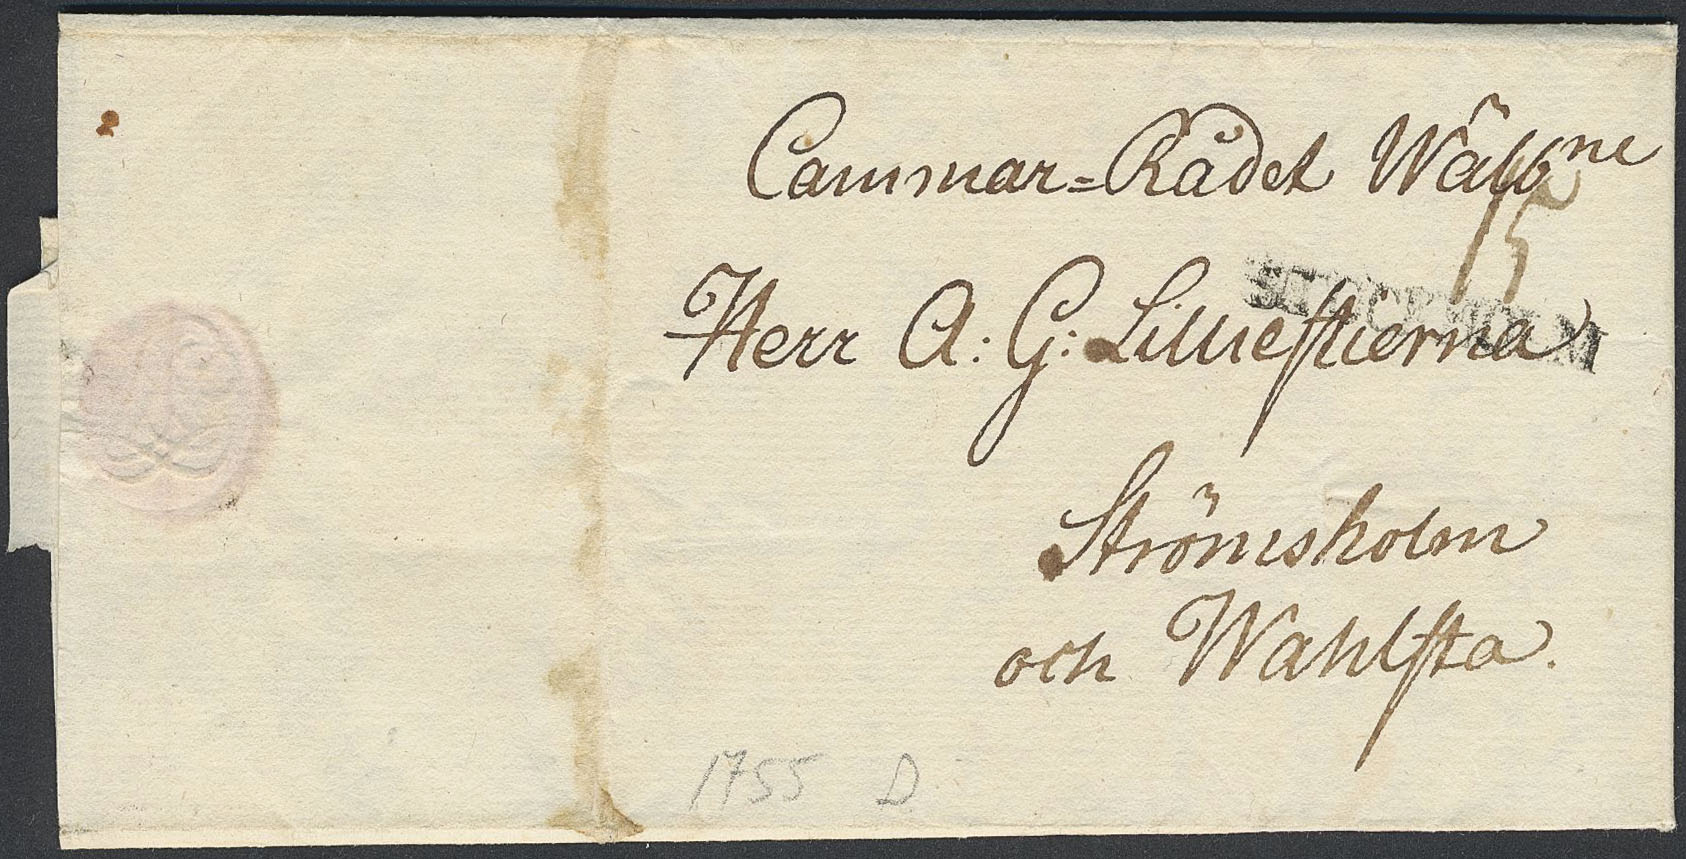 Cammar=Rådet Wälbne
15
STOCKHOLM
Herr A: G: Lilliestierna
Strömsholm
och Wahlsta.
1755 D